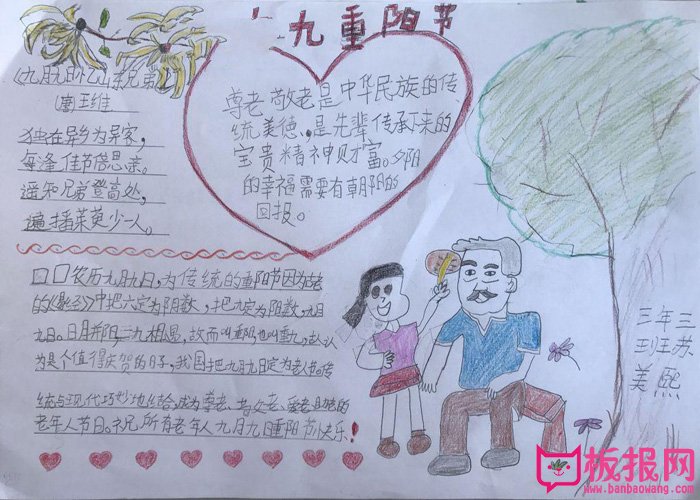 九重阳节
《九月九日忆山东兄弟》
唐王维
独在异乡为异客，
每逢佳节倍思亲。
遥知兄弟登高处，
遍插茱萸少一人。
尊老敬老是中华民族的传
统美德，是先辈传承下来的
宝贵精神财富。夕阳
的幸福需要有朝阳的
回报。
农历九月九日，为传统的重阳节因为古老
的《易经》中把六定为阴数，把九定为阳数，九月
九日。日月都，二九相遇，故而叫重阳也叫重九，古人认
为是个值得庆贺的日子，我国把九月九日定为老人节。传
统与现代巧妙地结合，成为尊老、敬老、爱老、助老的
老年人节日。祝所有老年人九月九重阳节快乐！
三年三
班王苏
美熙
板报网
www.banbaowang.com